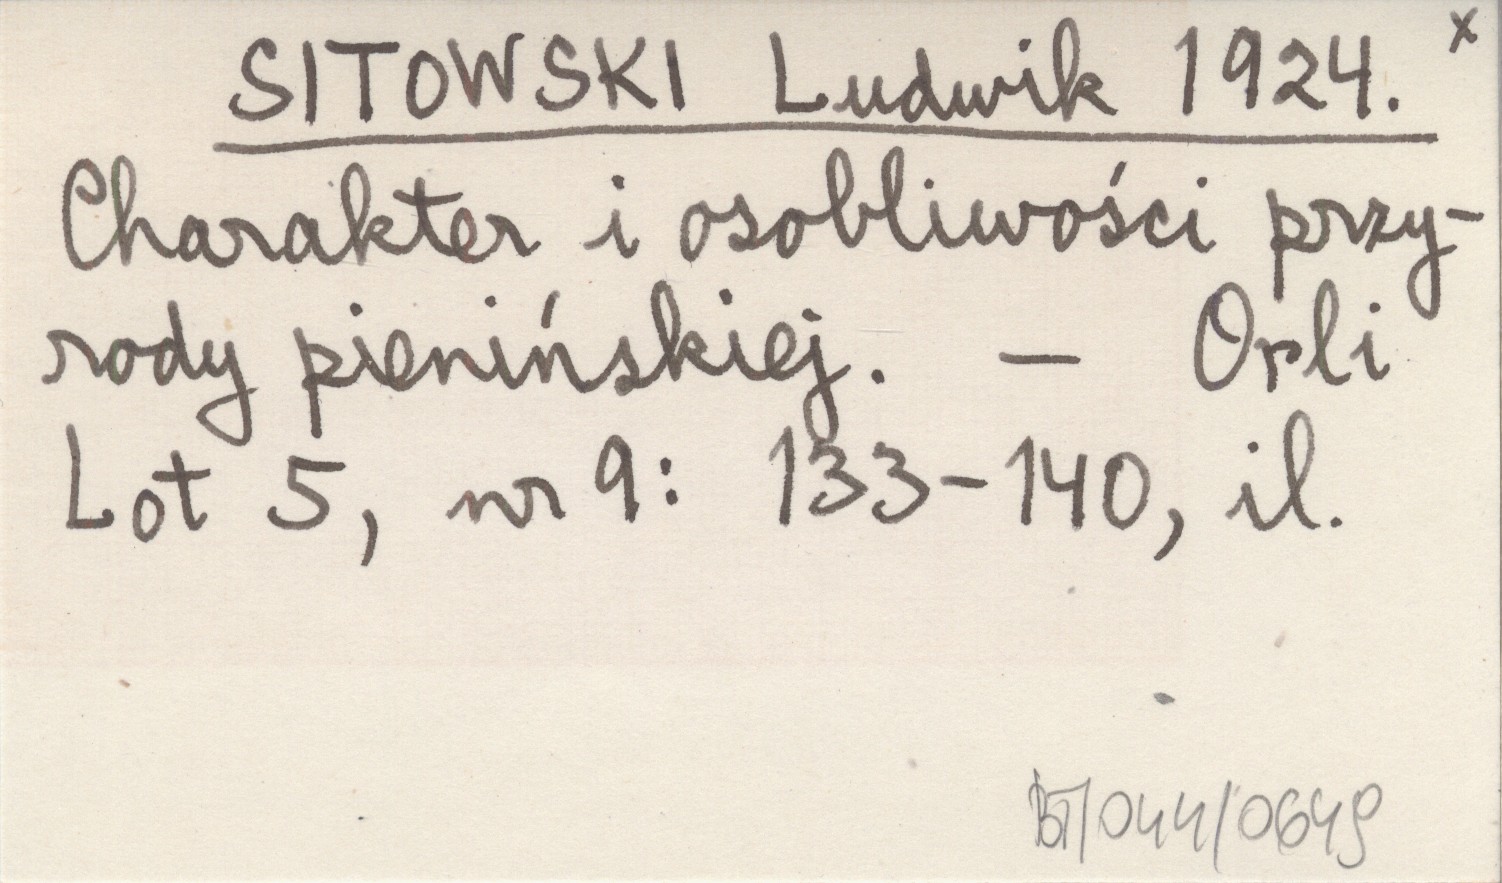 SITOWSKI Ludwik 1924. x
Charakter i osobliwości przy-
rody pienińskiej. — Orli
Lot 5, nr 9: 133-140, il.
BT/044/0649